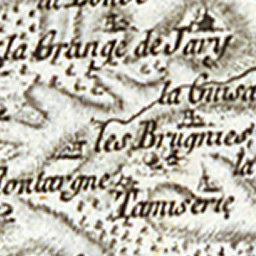 la Grange de Jary
la Guisa
les Brugnies
la
Montargne
Tamiserie